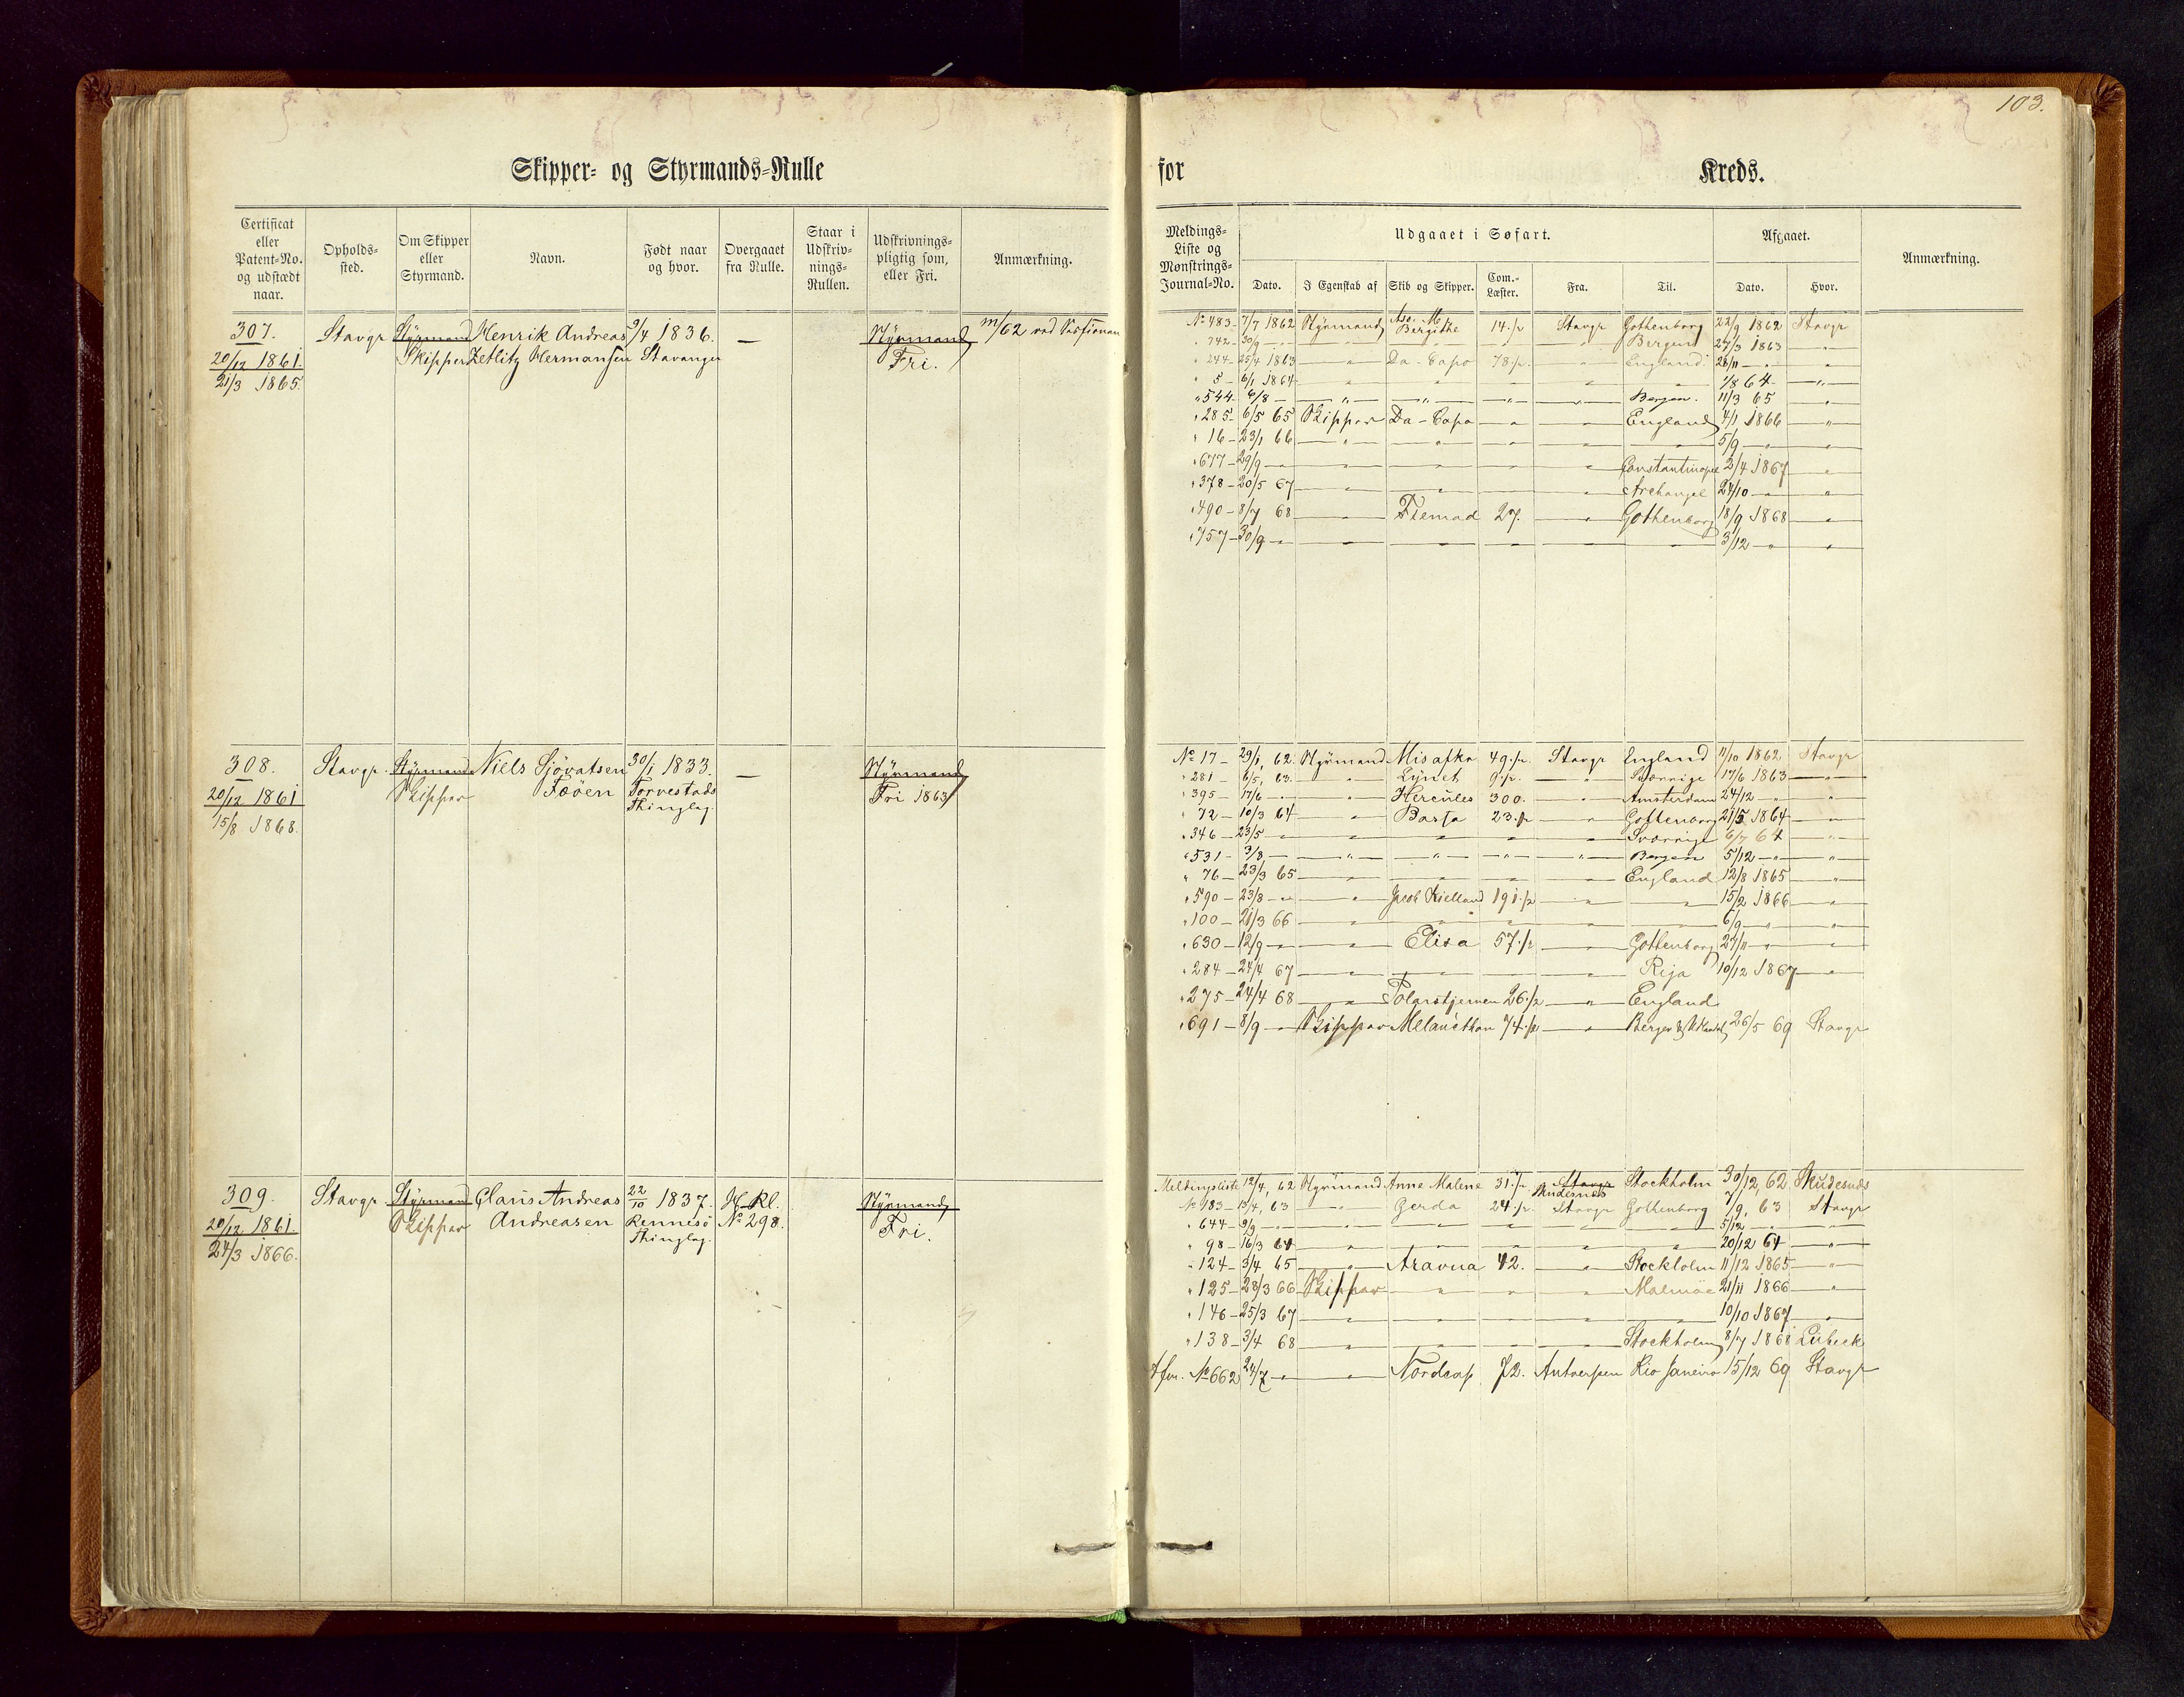 103.
Skipper- og Styrmands-Rulle
for
Kreds.
Certificat eller Patent-No. og udstædt naar.
Opholds-sted.
Om Skipper eller Styrmand.
Navn.
Født naar og hvor.
Overgaaet fra Rulle.
Staar i Udskriv-nings-Rullen.
Udskrivnings-pligtig som, eller Fri.
Anmærkning.
Meldings-Liste og Mønstrings-Journal-No.
Udgaaet i Søfart.
Dato.
I Egenskab af
Skib og Skipper.
Com.-Læster.
Fra.
Til.
Afgaaet.
Dato.
Hvor.
Anmærkning.
307. Stavgr Styrmand Henrik Andreas 9/4 1836. — Styrmand m/62 ved Sessionen
20/12 1861. Skipper Zetlitz Hermansen Stavanger Fri.
21/3 1865.
No 483 - 7/7 1862 Styrmand Bergithe 14./2 Stavgr Gothenborg 22/9 1862 Stavgr
" 742 - 30/9 - " " " " " Bergen 27/3 1863 "
" 244 - 25/4 1863 " Da-Capo 78/2. " England 28/11 - " "
" 5 - 6/1 1864 " " " " " 1/8 64 - "
" 544 - 6/8 - " " " " Bergen. 11/3 65 "
" 285 - 6/5 65 Skipper Da-Capo " " England 4/1 1866 "
" 16 - 23/1 66 " " " " " 5/9 - " "
" 677 - 29/9 - " " " " " Constantinopel 2/4 1867 "
" 378 - 20/5 67 " " " " Archangel 24/10 - " "
" 490 - 8/7 68 " Fremad 27. " Gothenborg 18/9 1868 "
" 757 - 30/9 - " " " " " " 3/12 - " "
308. Stavgr. Styrmand Niels Sjövatsen 30/1 1833. — Styrmand
20/12 1861 Skipper Föøen Torvestads Fri 1863
15/8 1868. Thinglag.
No 17 - 29/1, 62. Styrmand Misafka 49./2. Stavgr England 11/10 1862 Stavgr
" 281 - 6/5, 63. " Lynet 9./2. " Sverrige 17/6 1863 "
" 395 - 17/6 - " " Hercules 300. " Amsterdam 24/12 - " "
" 72 - 10/3 64 " Barsa 23./2 " Gothenborg 21/5 1864 "
" 346 - 23/5 - " " " " " Sverrige 6/7 64 "
" 531 - 3/8 - " " " " Bergen 5/12 - " "
" 76 - 23/3 65 " " " " England 12/8 1865 "
" 590 - 23/8 - " " Jacob Kielland 191./2 " " 15/2 1866 "
" 100 - 21/3 66 " " " " " 6/9 - " "
" 630 - 12/9 - " " Elisa 57./2 " Gothenborg 27/11 - " "
" 284 - 24/4 67 " " " " Riga 10/12 1867 "
" 275 - 24/4 68 " Polarstjernen 26./2 " England
" 691 - 8/9 - " Skipper Melancthon 74./2 " Bergen 26/5 69 Stavgr
309. Stavgr Styrmand Claus Andreas 22/10 1837. H. Rl. Styrmand
20/12 1861. Skipper Andreasen Rennesö No 298. Fri.
24/3 1866. Thinglag.
Meldingsliste 12/4, 62 Styrmand Anne Malene 31./2 Stavgr Skudesnes Stockholm 30/12, 62 Skudesnes
No 183 - 13/4, 63 " Gerda 24./2 Stavgr Gothenborg 7/9, 63 Stavgr
" 644 - 9/9 - " " " " " " 5/12 - " "
" 98 - 16/3 64 " " " " " 20/12 64 "
" 124 - 3/4 65 " Aravna 42. " Stockholm 11/12 1865 "
" 125 - 28/3 66 Skipper " " " Malmöe 21/11 1866 "
" 146 - 25/3 67 " " " " " 10/10 1867 "
" 138 - 3/4 68 " " " " Stockholm 8/7 1868 Lübeck
No 662 24/7 - " " Nordcap 72. Antverpen Rio Janeiro 15/12 69 Stavgr